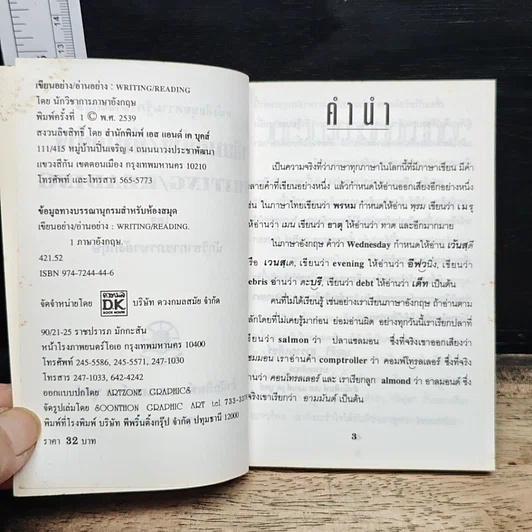 เขียนอย่าง/อ่านอย่าง : WRITING/READING
โดย นักวิชาการภาษาอังกฤษ
พิมพ์ครั้งที่ 1 © พ.ศ. 2539
สงวนลิขสิทธิ์ โดย สำนักพิมพ์ เอส แอนด์ เค บุคส์
111/415 หมู่บ้านปิ่นเจริญ 4 ถนนนาวงประชาพัฒนา
แขวงสีกัน เขตดอนเมือง กรุงเทพมหานคร 10210
โทรศัพท์ และโทรสาร 565-5773
ข้อมูลทางบรรณานุกรมสำหรับห้องสมุด
เขียนอย่าง/อ่านอย่าง : WRITING/READING.
1 ภาษาอังกฤษ.
421.52
ISBN 974-7244-44-6
จัดจำหน่ายโดย DK BOOK HOUSE บริษัท ดวงกมลสมัย จำกัด
90/21-25 ราชปรารภ มักกะสัน
หน้าโรงภาพยนตร์โอเอ กรุงเทพมหานคร 10400
โทรศัพท์ 245-5586, 245-5571, 247-1030
โทรสาร 247-1033, 642-4242
ออกแบบปกโดย ARTZONE GRAPHICS
จัดรูปเล่มโดย SOONTHON GRAPHIC ART tel 733-
พิมพ์ที่โรงพิมพ์ บริษัท พีพริ้นติ้งกรุ๊ป จำกัด ปทุมธานี 12000
ราคา 32 บาท
คำนำ
เป็นความจริงที่ว่าภาษาทุกภาษาในโลกนี้ที่มีภาษาเขียน มีคำ
ลายคำที่เขียนอย่างหนึ่ง แล้วกำหนดให้อ่านออกเสียงอีกอย่างหนึ่ง
ช่น ในภาษาไทยเขียนว่า พรหม กำหนดให้อ่าน พฺรม เขียนว่า เมรุ
ห้อ่านว่า เมน เขียนว่า ธาตุ ให้อ่านว่า ทาด และอีกมากมาย
ในภาษาอังกฤษ คำว่า Wednesday กำหนดให้อ่าน เว้นสฺดิ
รือ เวนสฺเด, เขียนว่า evening ให้อ่านว่า อีฟวฺนิ่ง, เขียนว่า
ebris อ่านว่า ดะบรี, เขียนว่า debt ให้อ่านว่า เด็ท เป็นต้น
คนที่ไม่ได้เรียนรู้ เช่นอย่างเราเรียนภาษาอังกฤษ ถ้าอ่านตาม
ลักโดยที่ไม่เคยรู้มาก่อน ย่อมอ่านผิด อย่างทุกวันนี้เราเรียกปลาที่
รียกว่า salmon ว่า ปลาแซลมอน ซึ่งที่จริงเขาออกเสียงว่า
ซมมอน เราอ่านคำ comptroller ว่า คอมพ์โทรลเลอร์ ซึ่งที่จริง
า คอนโทรลเลอร์ และ เราเรียกลูก almond ว่า อาลมอนด์ ซึ่งที่
ริงเขาเรียกว่า อามมันด์ เป็นต้น
3